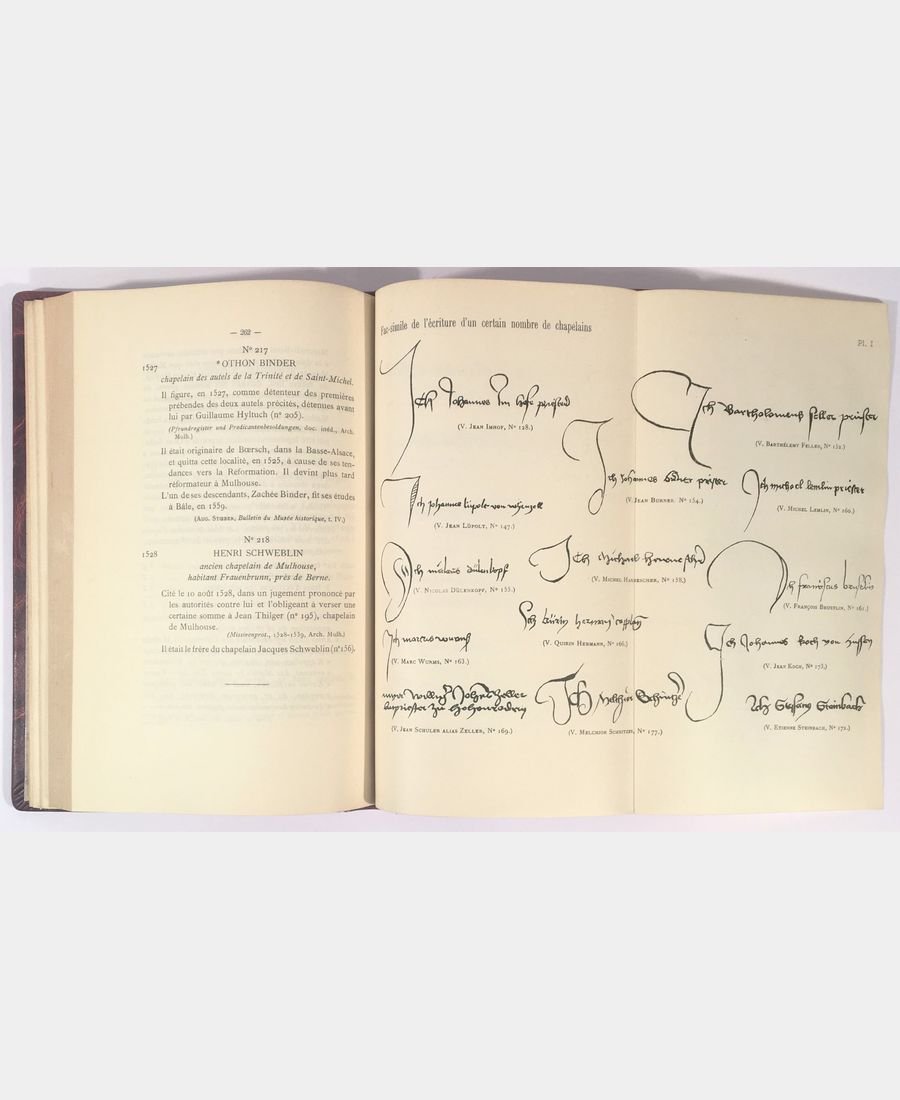 — 262 —
N° 217
1527
*OTHON BINDER
chapelain des autels de la Trinité et de Saint-Michel.
Il figure, en 1527, comme détenteur des premières
prébendes des deux autels précités, détenues avant
lui par Guillaume Hyltuch (n° 205).
(Pfrundregister und Predicantenbesoldungen, doc. inéd., Arch.
Mulh.)
Il était originaire de Bœrsch, dans la Basse-Alsace,
et quitta cette localité, en 1525, à cause de ses ten-
dances vers la Réformation. Il devint plus tard
réformateur à Mulhouse.
L'un de ses descendants, Zachée Binder, fit ses études
à Bâle, en 1559.
(Aug. Stœber, Bulletin du Musée historique, t. IV.)
N° 218
1528
HENRI SCHWEBLIN
ancien chapelain de Mulhouse,
habitant Frauenbrunn, près de Berne.
Cité le 10 août 1528, dans un jugement prononcé par
les autorités contre lui et l'obligeant à verser une
certaine somme à Jean Thilger (n° 195), chapelain
de Mulhouse.
(Missivenprot., 1528-1539, Arch. Mulh.)
Il était le frère du chapelain Jacques Schweblin (n° 156).
Fac-simile de l'écriture d'un certain nombre de chapelains
Pl. I
Ich Johannes Im hofe priester
(V. Jean Imhof, N° 128.)
Ich Bartholomeus feller priester
(V. Barthélemy Feller, N° 152.)
Ich Johannes priester
(V. Jean Burner, N° 154.)
Ich michael lemlin priester
(V. Michel Lemlin, N° 160.)
Ich Johannes lüpolt von
(V. Jean Lüpolt, N° 147.)
Ich nicolaus dülenkopf
(V. Nicolas Dülenkopf, N° 155.)
Ich Michael
(V. Michel Hanescher, N° 158.)
Ich franciscus
(V. François Brustlin, N° 161.)
Ich herman capplan
(V. Quirin Hermann, N° 166.)
Ich marcus wurmß
(V. Marc Wurms, N° 163.)
Ich Johannes koch von
(V. Jean Koch, N° 173.)
zeller
zu
(V. Jean Schuler alias Zeller, N° 169.)
Ich Melchior
(V. Melchior Schnitzer, N° 177.)
Ich Steffany Steinbach
(V. Etienne Steinbach, N° 172.)